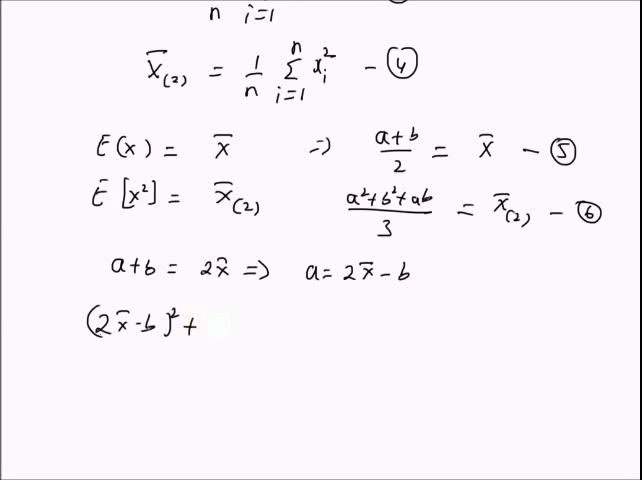 n i=1
x̄₍₂₎ = 1/n Σ_{i=1}^{n} xᵢ² – ④
E(x) = x̄ ⇒ (a+b)/2 = x̄ – ⑤
E[x²] = x̄₍₂₎ (a²+b²+ab)/3 = x̄₍₂₎ – ⑥
a+b = 2x̄ ⇒ a = 2x̄ – b
(2x̄ - b)² +